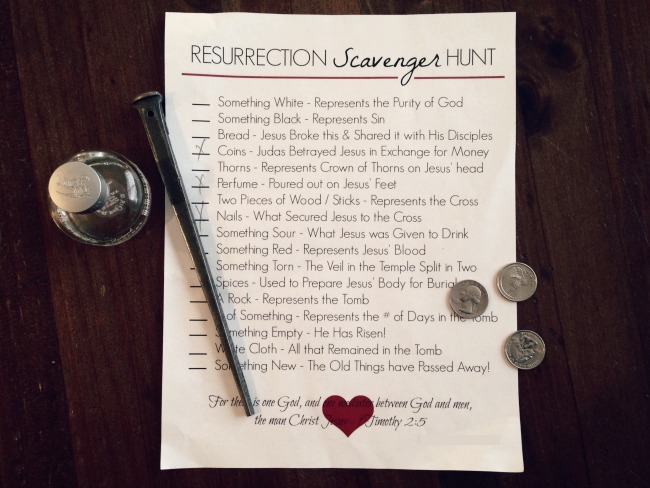 RESURRECTION Scavenger HUNT
Something White - Represents the Purity of God
Something Black - Represents Sin
Bread - Jesus Broke this & Shared it with His Disciples
Coins - Judas Betrayed Jesus in Exchange for Money
Thorns - Represents Crown of Thorns on Jesus' head
Perfume - Poured out on Jesus' Feet
Two Pieces of Wood / Sticks - Represents the Cross
Nails - What Secured Jesus to the Cross
Something Sour - What Jesus was Given to Drink
Something Red - Represents Jesus' Blood
Something Torn - The Veil in the Temple Split in Two
Spices - Used to Prepare Jesus' Body for Burial
A Rock - Represents the Tomb
of Something - Represents the # of Days in the Tomb
Something Empty - He Has Risen!
White Cloth - All that Remained in the Tomb
Something New - The Old Things have Passed Away!
For there is one God, and one mediator between God and men,
the man Christ Jesus - 1 Timothy 2:5